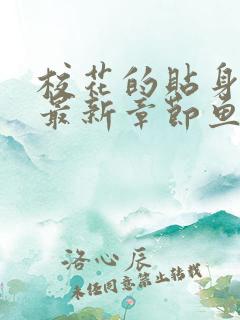 校花的贴身
最新章节鱼
洛心辰
未经同意禁止转载